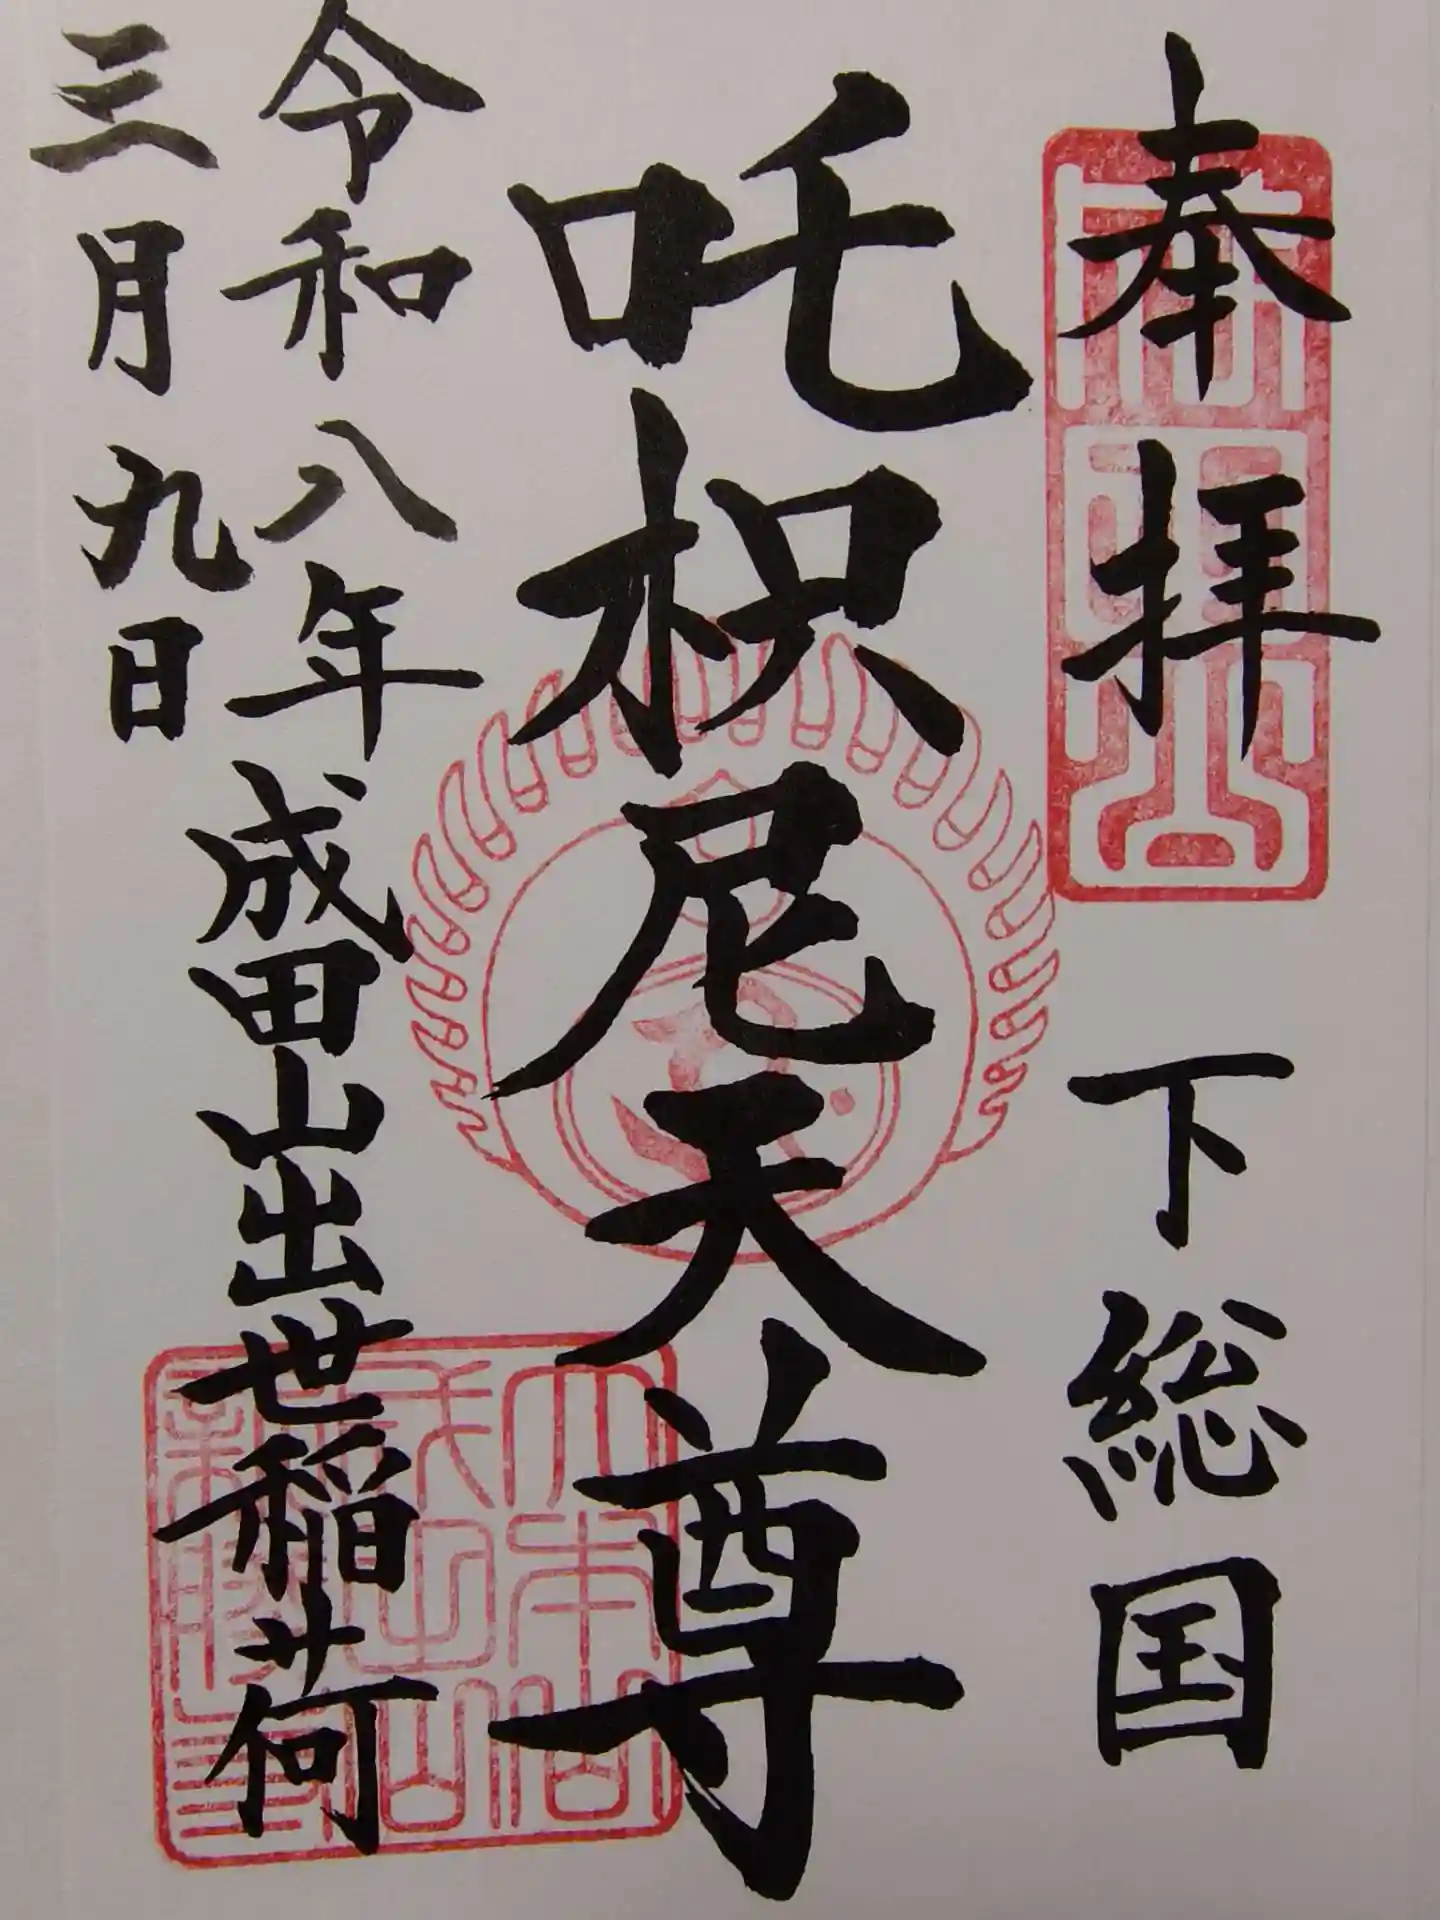 奉拝 下総国
吒枳尼天尊
令和八年 成田山出世稲荷
三月九日